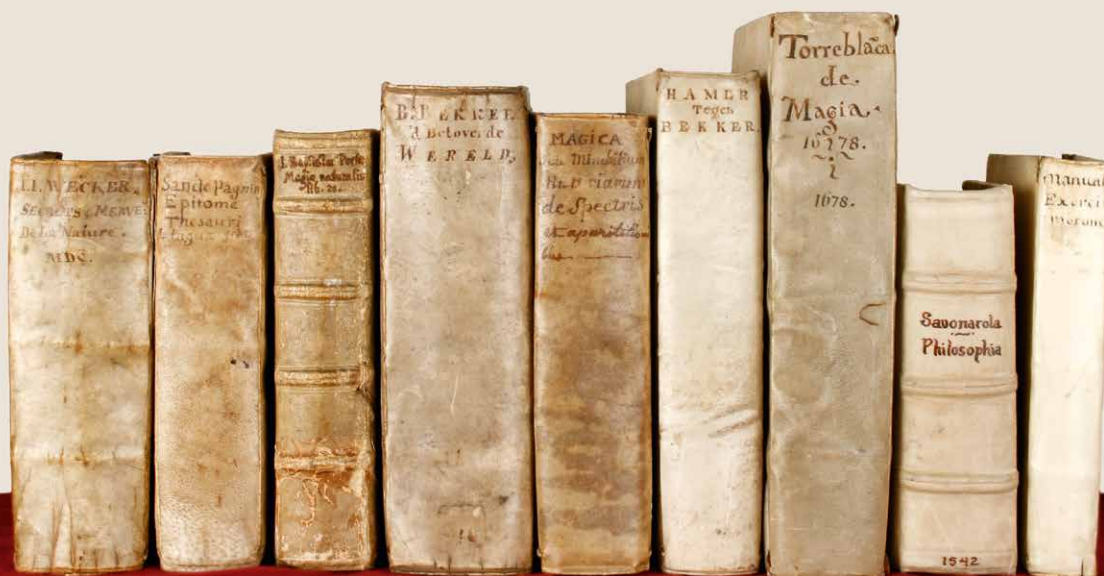 I.I. WECKER.
SECRETS & MERVE:
De La Nature.
MDC.
Sancte Pagnin
Epitome
Thesauri
I. Baptistæ Portæ
Magia naturalis
lib. 20.
B: BEKKER.
d Betoverde
WERELD.
MAGICA
de Spectris
et aparitioni
bus
HAMER
Tegen
BEKKER.
Torreblãca
de
Magia.
1678.
1678.
Savonarola
Philosophia
1542
Manual
Exorci